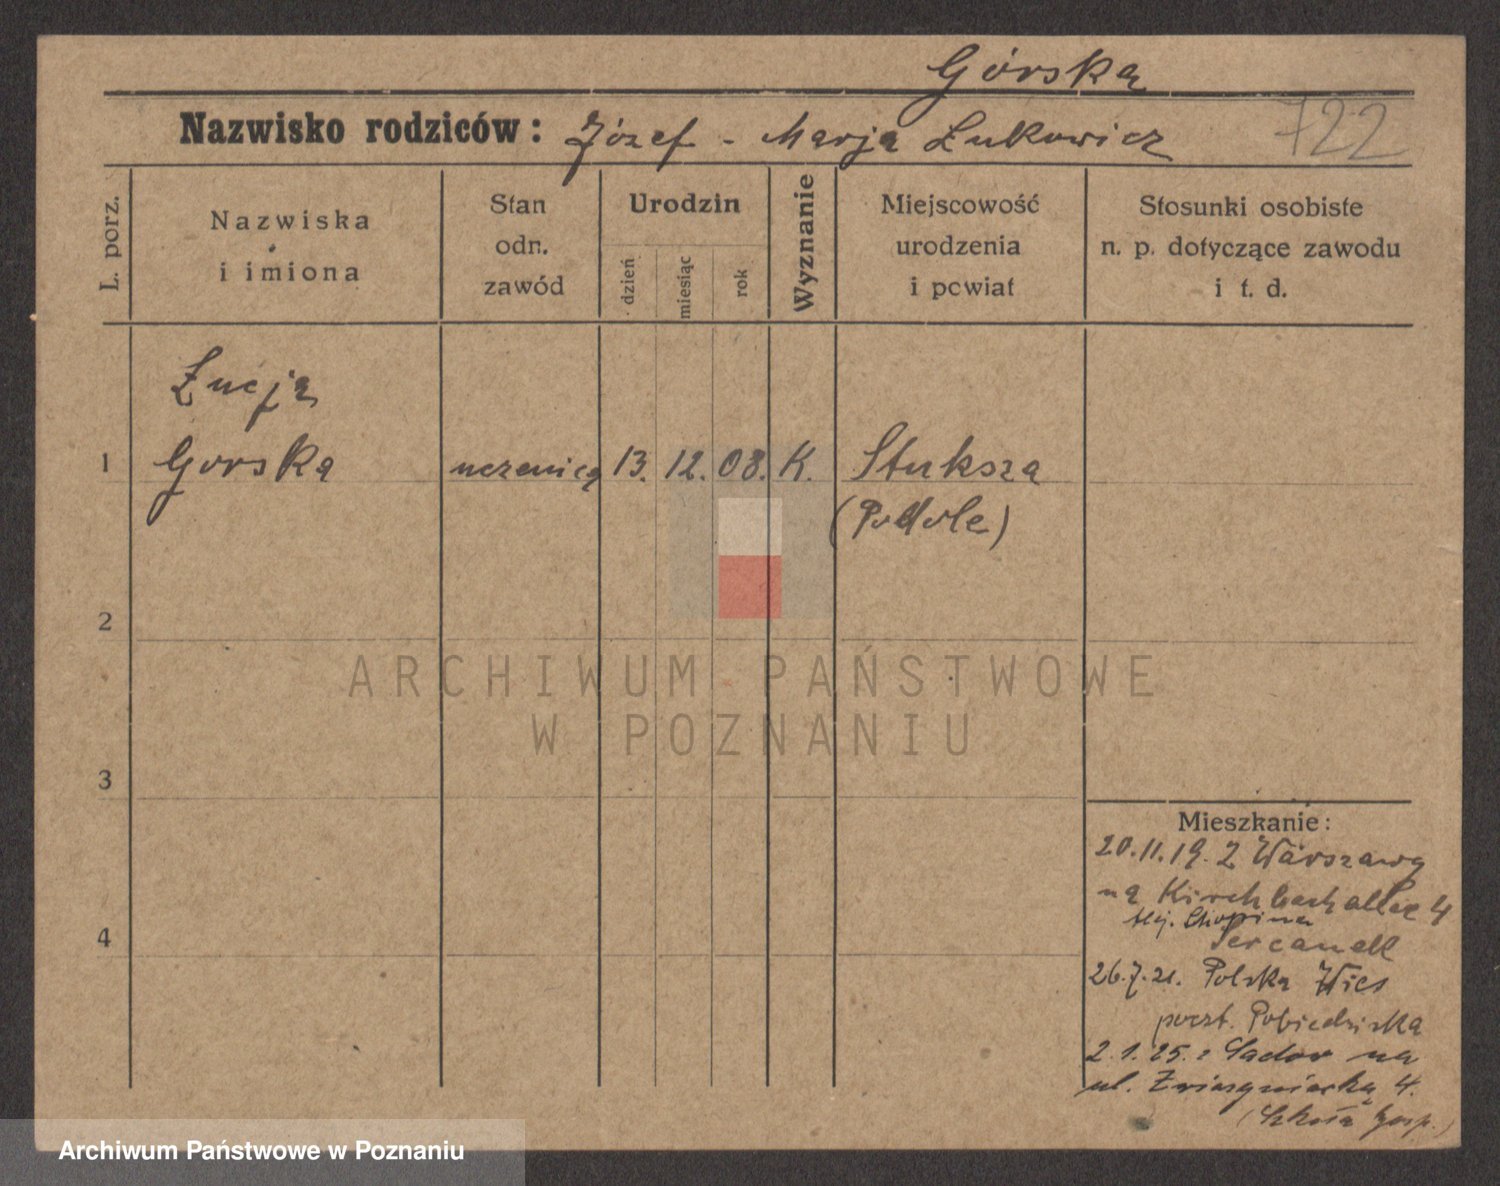 Górska
Nazwisko rodziców: Józef - Marja Łukowicz
722
L. porz.
Nazwiska
i imiona
Stan
odn.
zawód
Urodzin
dzień
miesiąc
rok
Wyznanie
Miejscowość
urodzenia
i powiat
Stosunki osobiste
n. p. dotyczące zawodu
i t. d.
Łucja
1 Gorska uczenica 13. 12. 08. K. Stuksza
(Podole)
2
3
4
ARCHIWUM PAŃSTWOWE
W POZNANIU
Mieszkanie:
20.11.19. Z Warszawy
na Kirchbachallee 4
Alej. Chopina
26.7.21. Polska Wies
poczt. Pobiedziska
2.1.25. z na
ul. 4.
(Szkoła Gosp.)
Archiwum Państwowe w Poznaniu